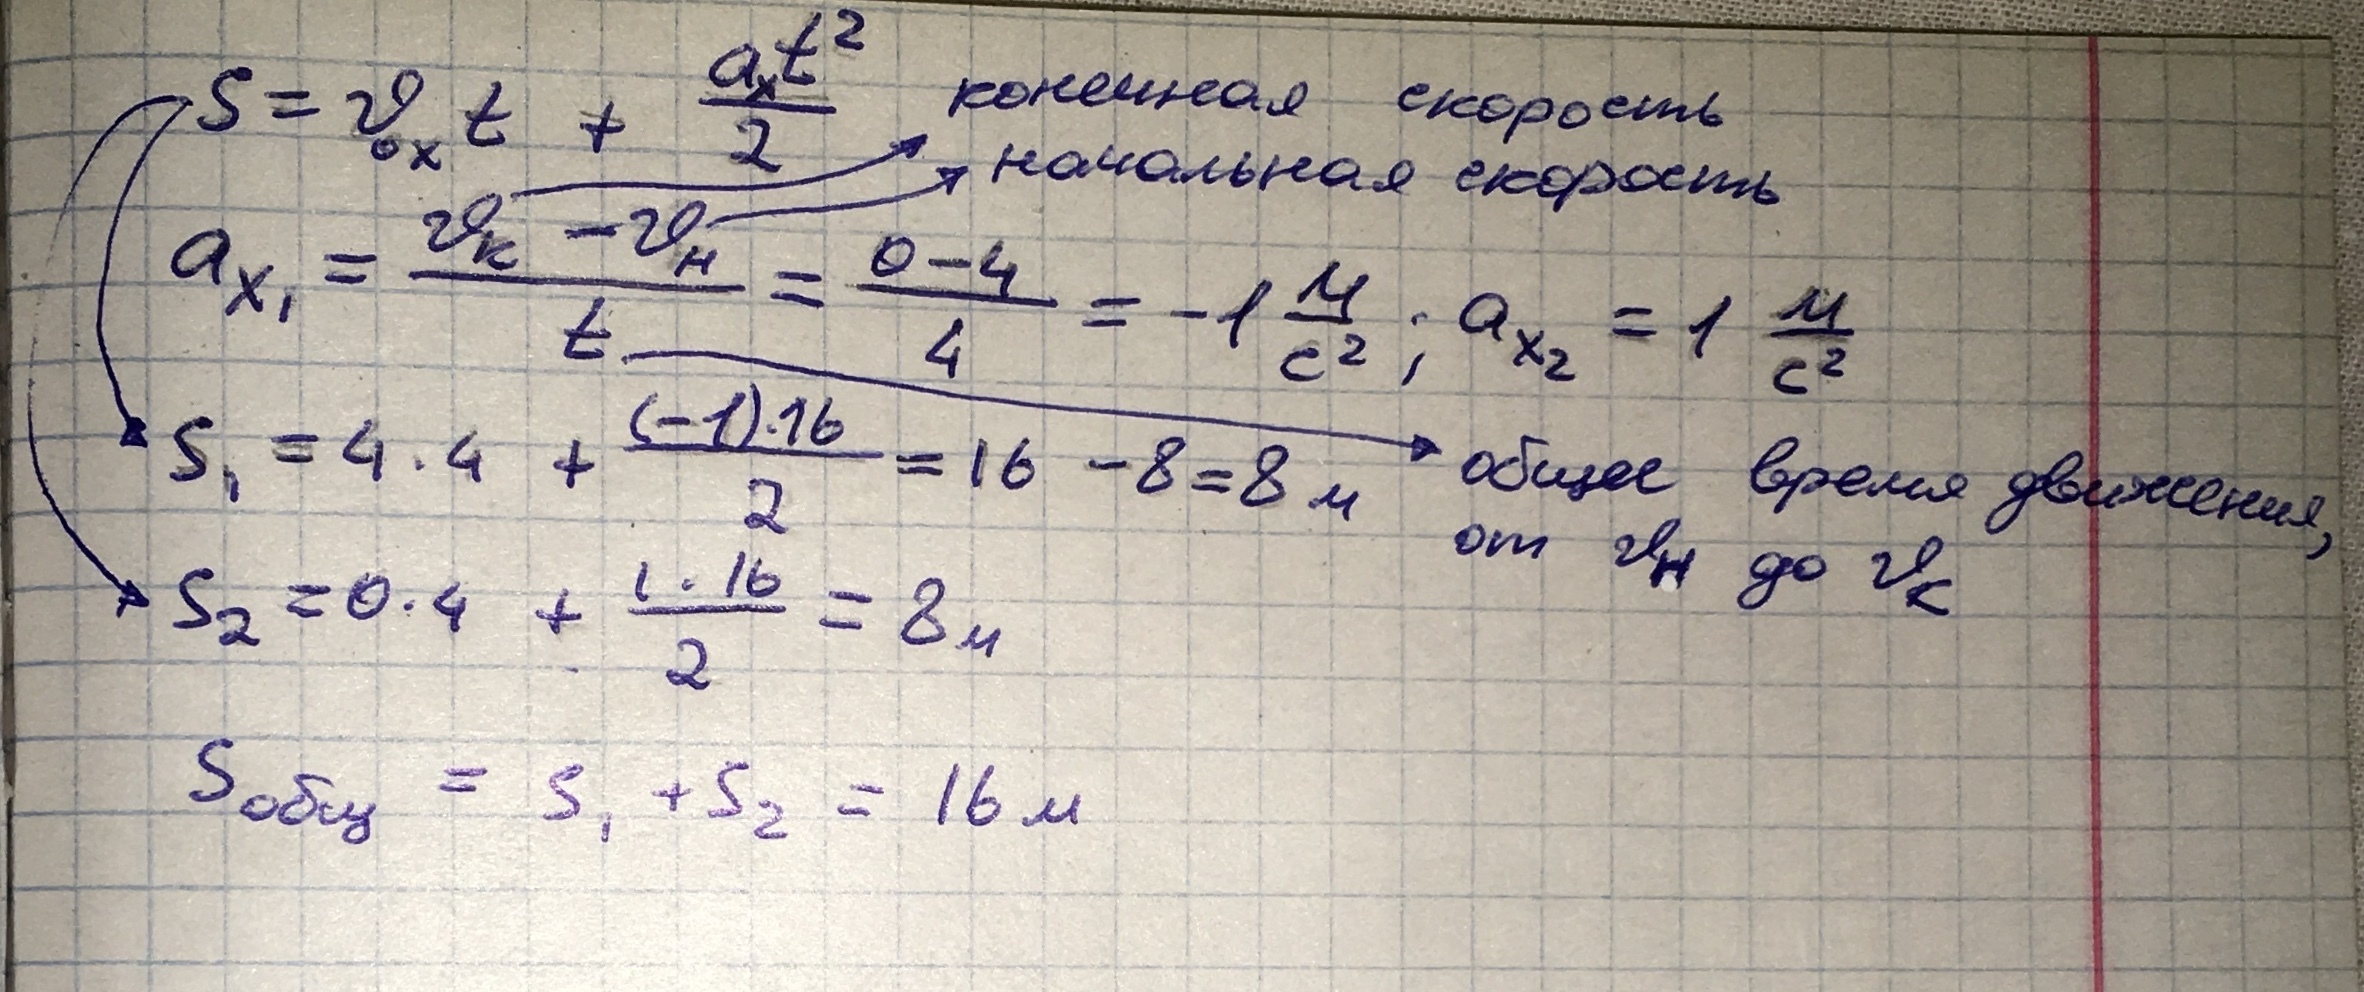 S = v₀ₓt + aₓt²/2 конечная скорость
начальная скорость
aₓ₁ = (vк − vн)/t = (0−4)/4 = −1 м/с² ; aₓ₂ = 1 м/с²
S₁ = 4·4 + (−1)·16/2 = 16 − 8 = 8 м общее время движения,
от vн до vк
S₂ = 0·4 + 1·16/2 = 8 м
Sобщ = S₁ + S₂ = 16 м